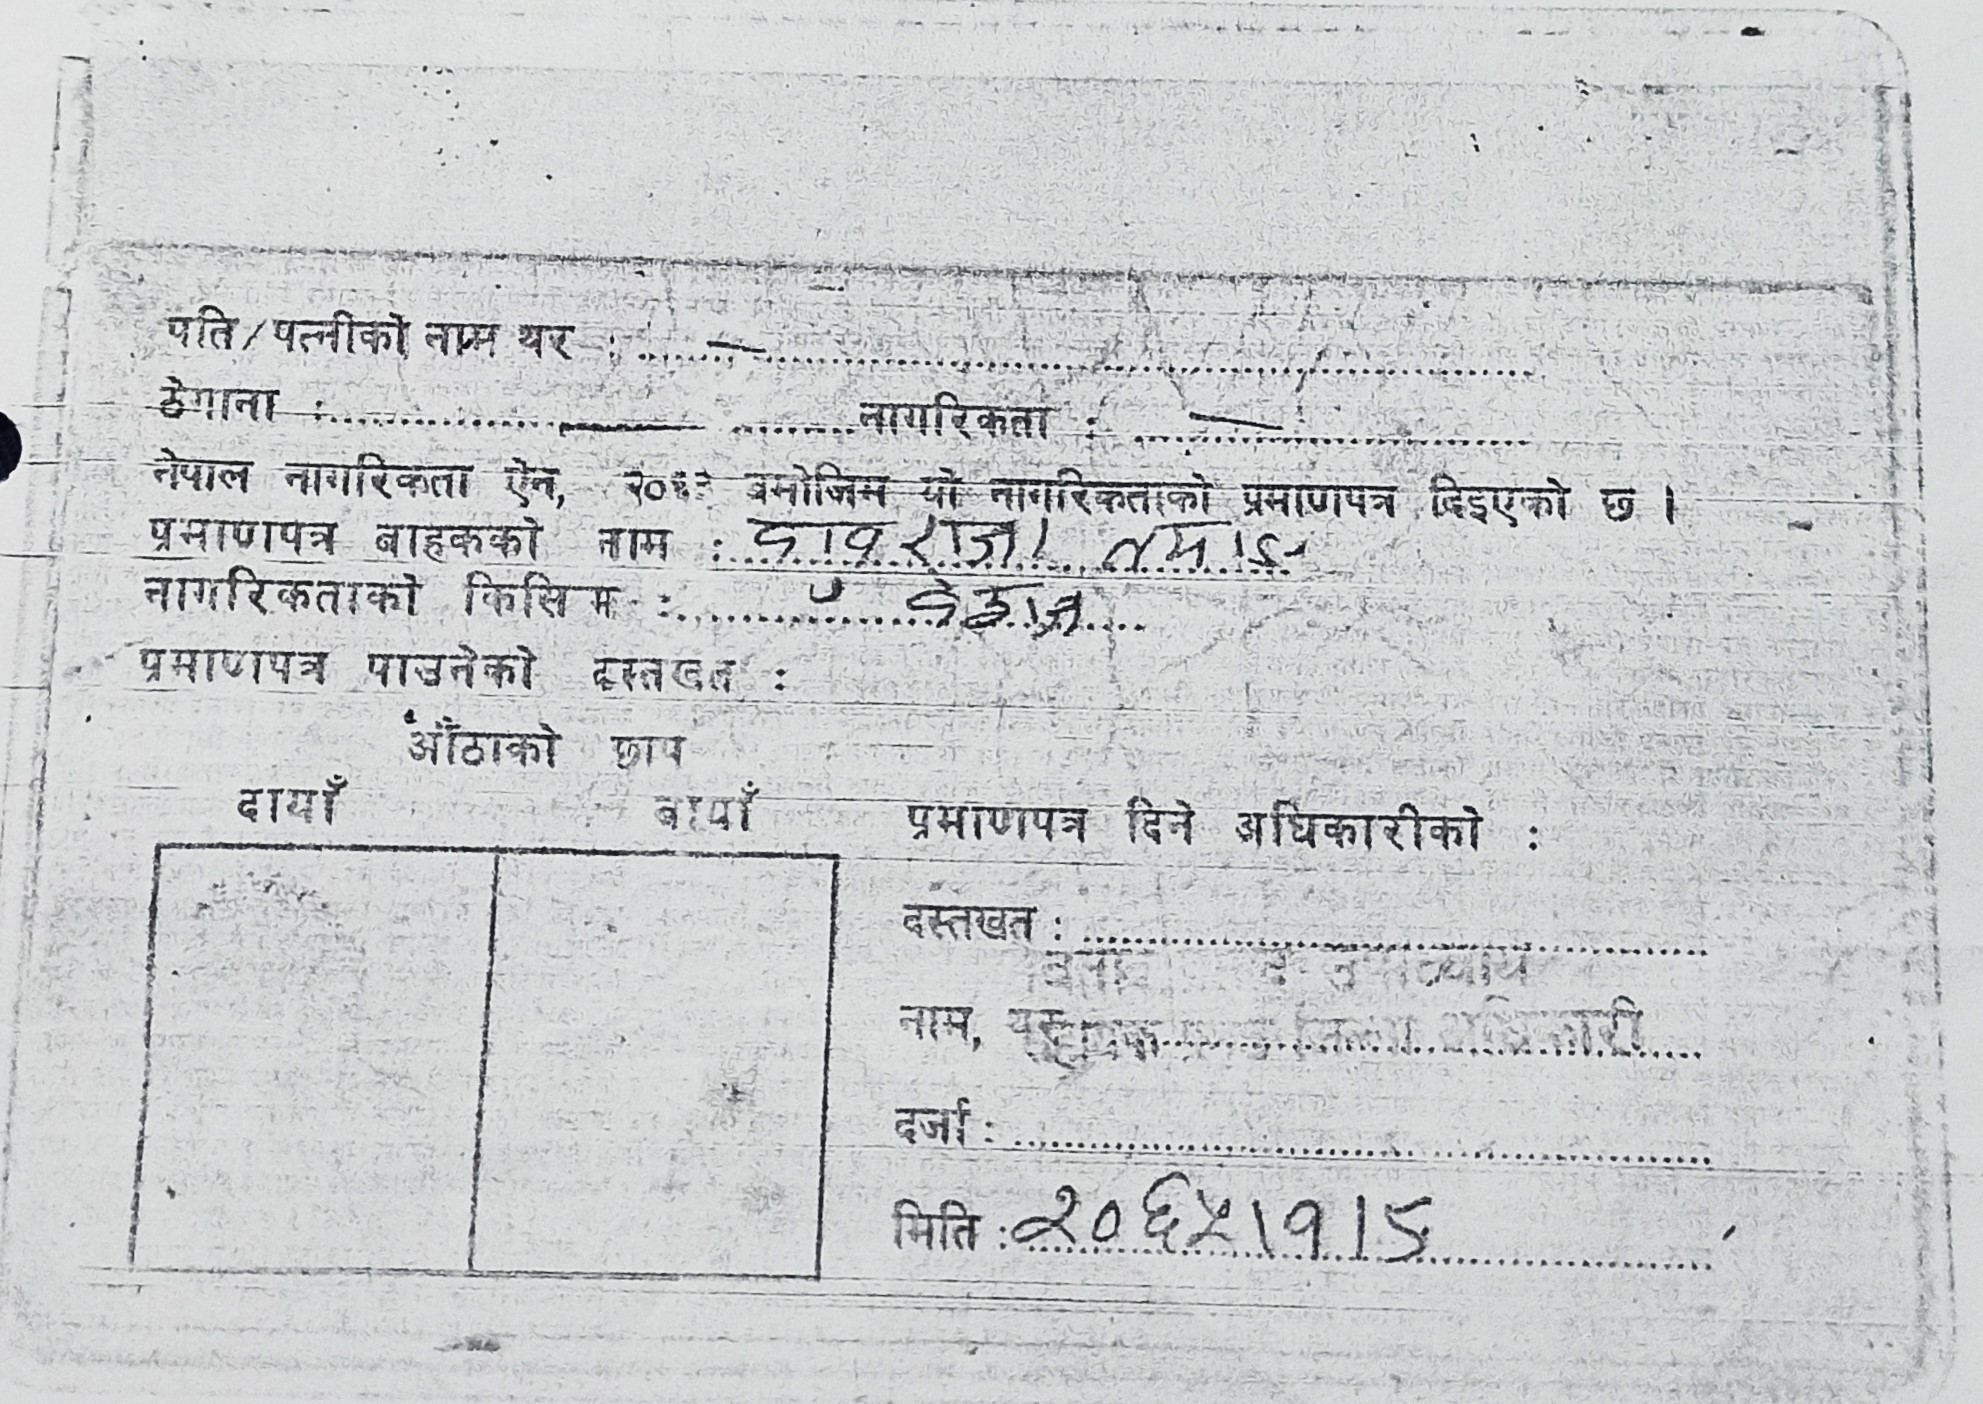 पति/पत्नीको नाम थर : —
ठेगाना : — नागरिकता : —
नेपाल नागरिकता ऐन, २०६३ बमोजिम यो नागरिकताको प्रमाणपत्र दिइएको छ ।
प्रमाणपत्र बाहकको नाम : राजा तमाङ
नागरिकताको किसिम : वंशज
प्रमाणपत्र पाउनेको दस्तखत :
औंठाको छाप
दायाँ बायाँ प्रमाणपत्र दिने अधिकारीको :
दस्तखत :
नाम, थर अधिकारी
दर्जा :
मिति : २०६५।१।८